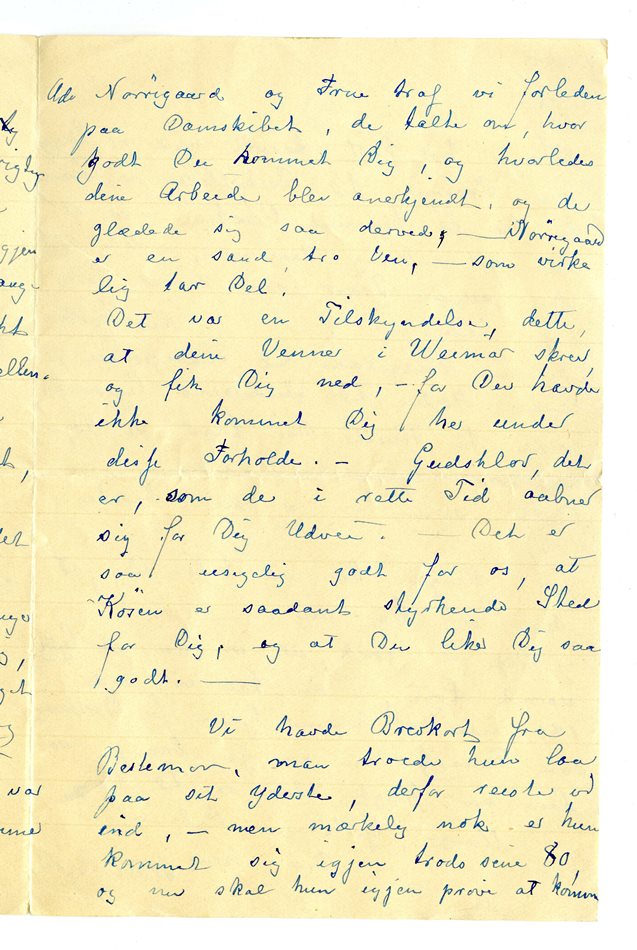 Adv Norregaard og Frue traf vi forleden
paa Damskibet, de talte om, hvor
godt Du kommet Dig, og hvorledes
dine Arbeide blev anerkjendt, og de
glædede sig saa derved, — Norregaard
er en sand, tro Ven, — som virke
lig tar Del.
Det var en Tilskyndelse, dette,
at dine Venner i Weimar skrev,
og fik Dig ned, — for Du havde
ikke kommet Dig her under
disse Forholde. — Gudskelov, det
er, som de i rette Tid aabner
sig for Dig Udvei. — Det er
saa usigelig godt for os, at
Kösen er saadant styrkende Sted
for Dig, og at Du liker Dig saa
godt. —
Vi havde Brevkort fra
Bestemor, man troede hun laa
paa sit Yderste, derfor reiste vi
ind, — men mærkelig nok er hun
kommet sig igjen trods sine 80
og nu skal hun igjen prøve at komme